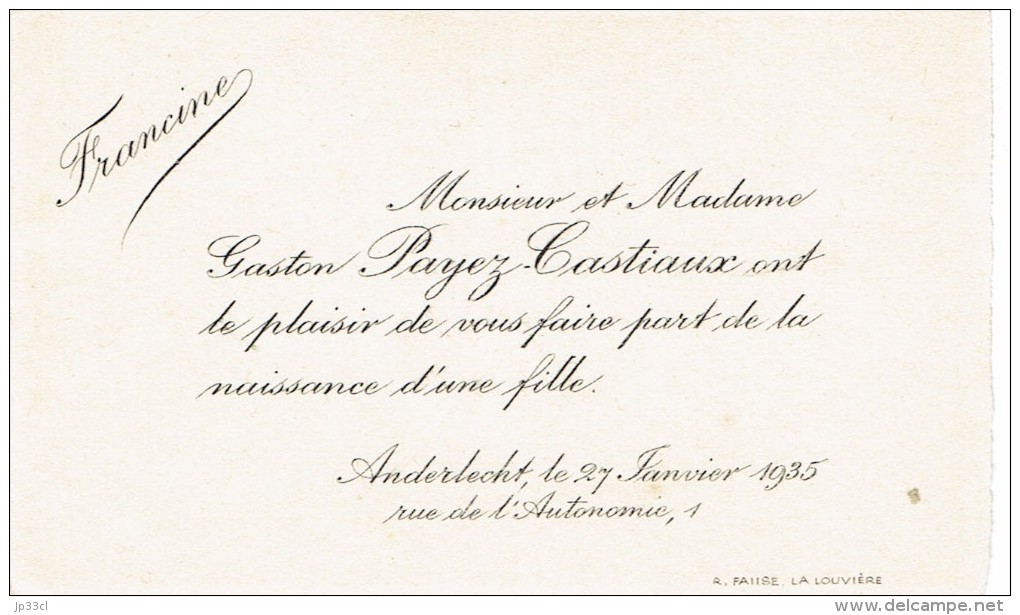 Francine
Monsieur et Madame
Gaston Payez-Castiaux ont
le plaisir de vous faire part de la
naissance d'une fille.
Anderlecht, le 27 Janvier 1935
rue de l'Autonomie, 1
R. FAIISE, LA LOUVIÈRE
jp33cl
delcampe.net